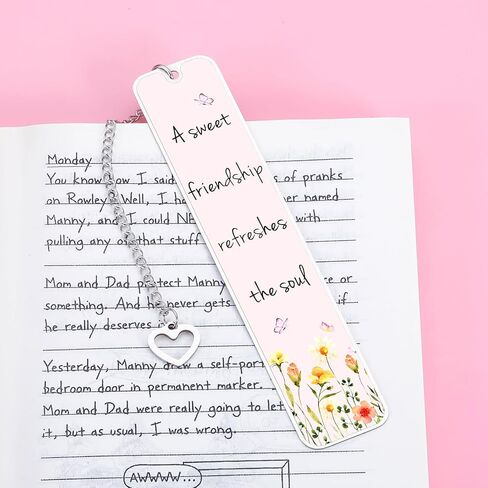 A sweet
friendship
refreshes
the soul
Monday
You know how I said of pranks
on Rowley? Well, I named
Manny, and I could with
pulling any of that stuff
Mom and Dad protect Manny or
something. And he never gets if
he really deserves
Yesterday, Manny drew a
bedroom door in permanent marker.
Mom and Dad were really going to let
it, but as usual, I was wrong.
AWWWW...